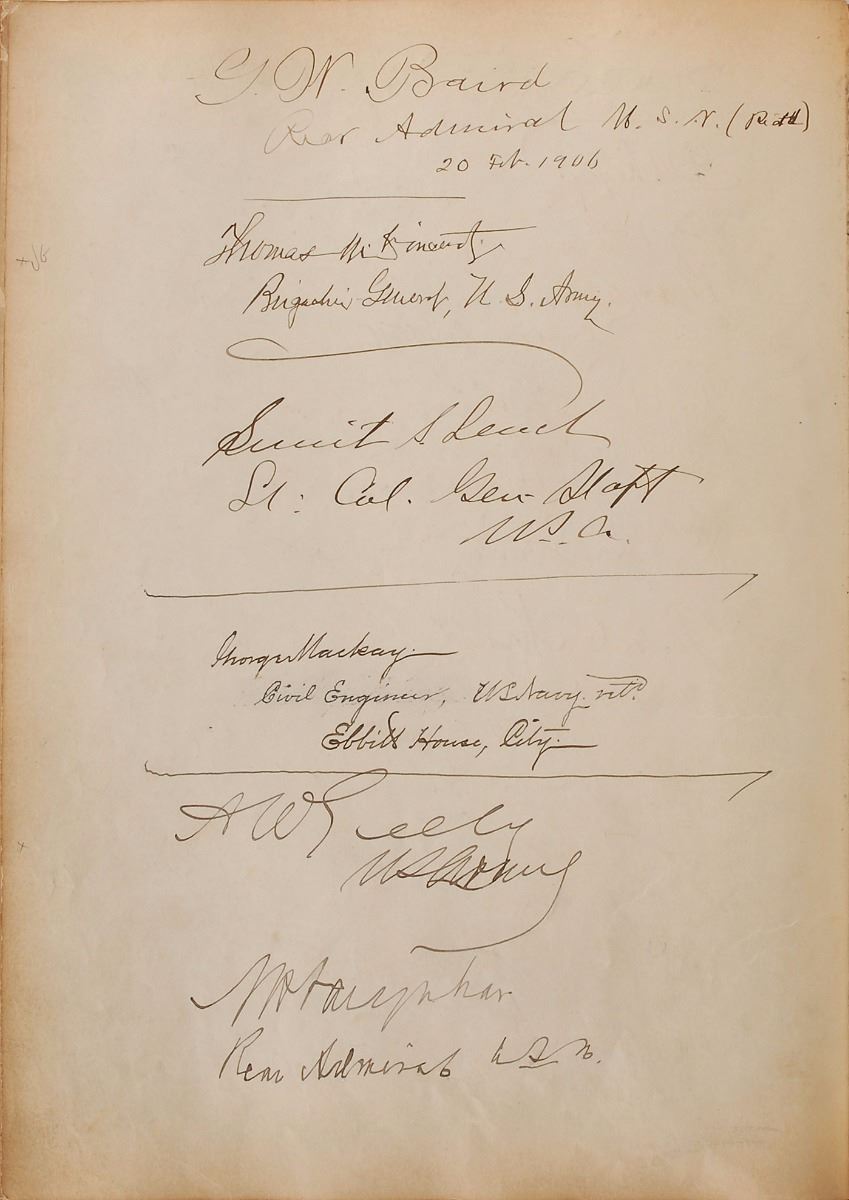 G. W. Baird
Rear Admiral U. S. N. (Retd)
20 Feb. 1906
Thomas M. Vincent
Brigadier General, U. S. Army.
Smith S. Leach
Lt. Col. Gen Staff
U.S.A.
George Mackay
Civil Engineer, US Navy, retd.
Ebbitt House, City.
A W Greely
US Army
Rear Admiral U S N.